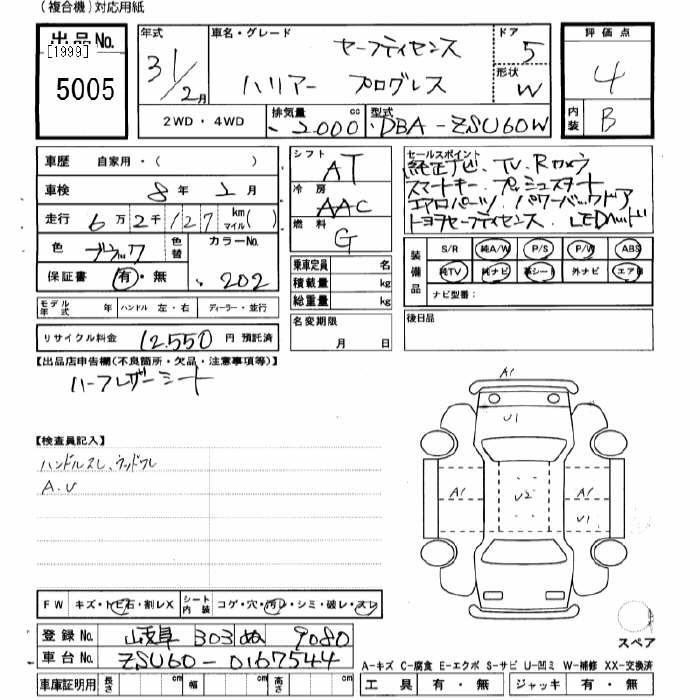 （複合機）対応用紙
出品No.
[1999]
5005
年式
31/2月
車名・グレード
セーフティセンス
ハリアー プログレス
ドア
5
形状
W
評価点
4
内装
B
2WD・4WD
排気量
cc
2000
型式
DBA-ZSU60W
車歴 自家用・( )
車検 8年2月
走行 6万2千127 km マイル( )
色 ブラック 色替 カラーNo.
保証書 有・無 202
モデル年式 年 ハンドル 左・右 ディーラー・並行
リサイクル料金 12,550 円 預託済
シフト AT
冷房 AAC
燃料 G
乗車定員 名
積載量 kg
総重量 kg
名変期限
月 日
セールスポイント
純正ナビ、TV、Rカメラ
スマートキー、プッシュスタート
エアロパーツ、パワーバックドア
トヨタセーフティセンス、LEDヘッド
装備品
S/R 純A/W P/S P/W ABS
純TV 純ナビ 革シート 外ナビ エアB
ナビ型番：
後日品
【出品店申告欄(不良箇所・欠品・注意事項等)】
ハーフレザーシート
【検査員記入】
ハンドルスレ、ウッドワレ
A.U
A1
U1
A1 U2 A1
U1
スペア
FW キズ・トビ石・割レX シート内装 コゲ・穴・汚レ・シミ・破レ・スレ
登録No. 岐阜 303 ぬ 9080
車台No. ZSU60-0167544
車庫証明用 長さ cm 幅 cm 高さ cm
A-キズ C-腐食 E-エクボ S-サビ U-凹ミ W-補修 XX-交換済
工具 有・無 ジャッキ 有・無